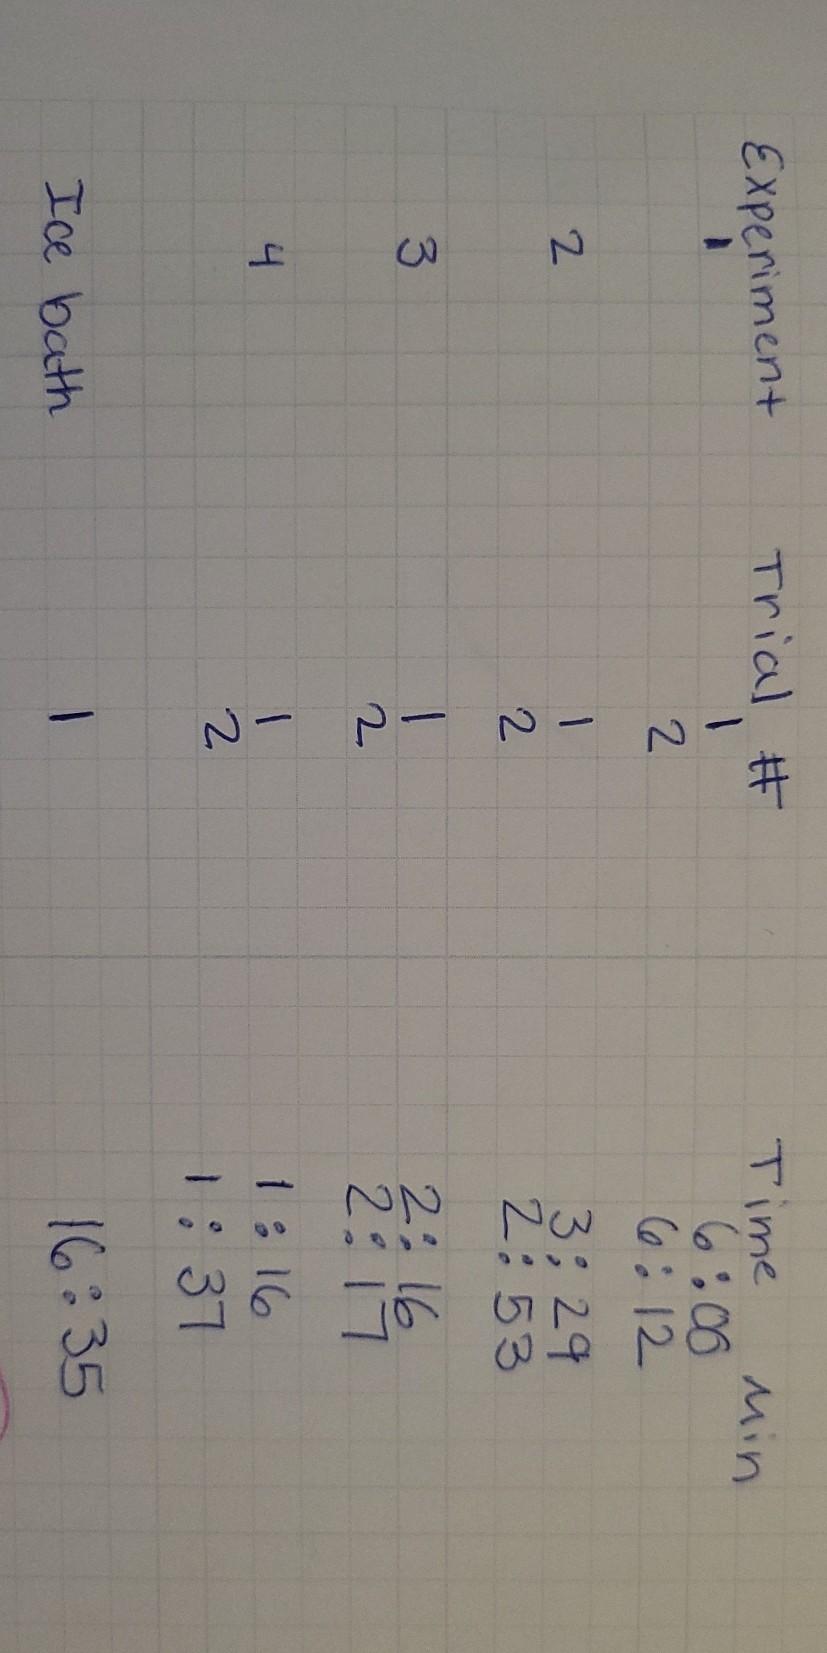 Experiment Trial # Time Min
1 1 6:06
2 6:12
2 1 3:29
2 2:53
3 1 2:16
2 2:17
4 1 1:16
2 1:37
Ice bath 1 16:35